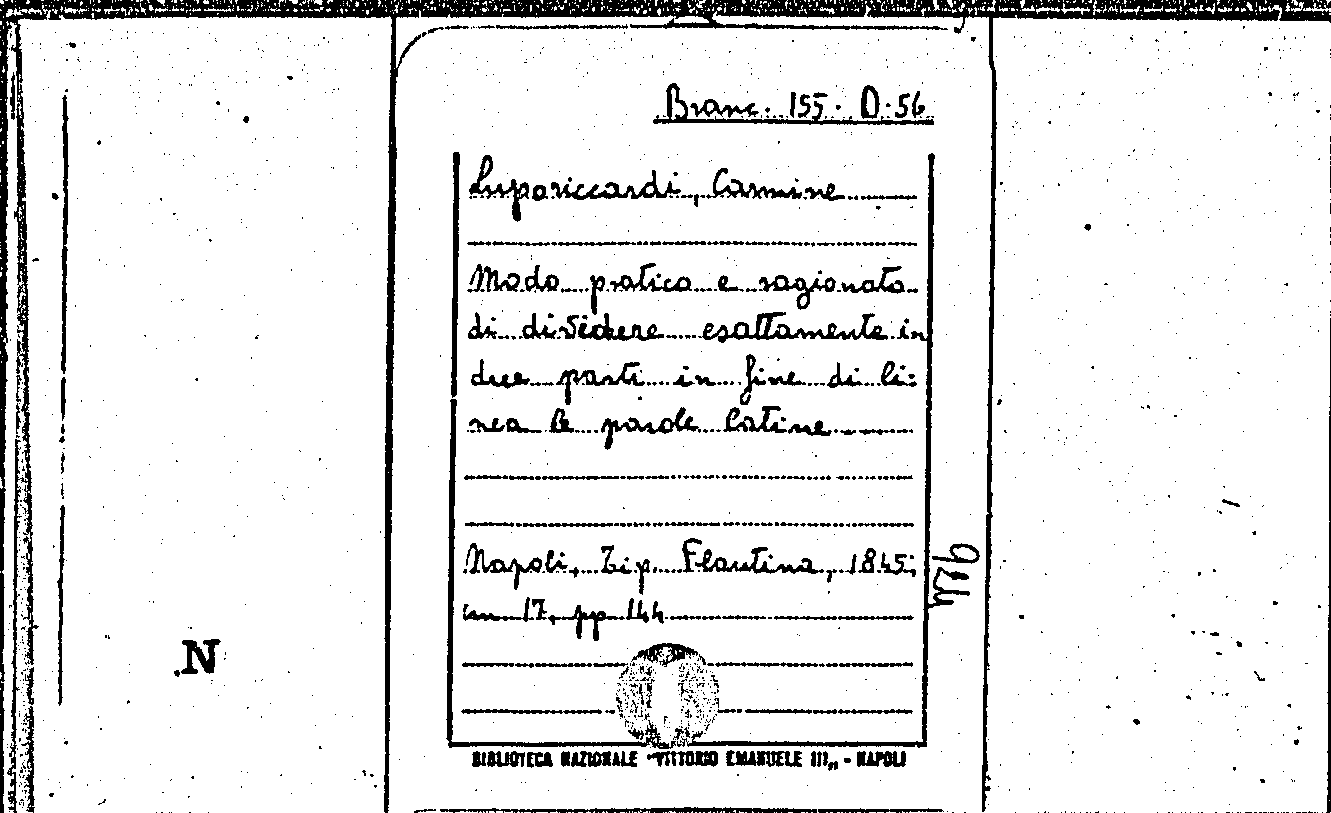 Branc. 155. D. 56
Luporiccardi, Carmine
Modo pratico e ragionato
di dividere esattamente in
due parti in fine di li=
nea le parole latine
Napoli, Tip. Flautina, 1845,
cm 17, pp 144
N
BIBLIOTECA NAZIONALE "VITTORIO EMANUELE III„ - NAPOLI